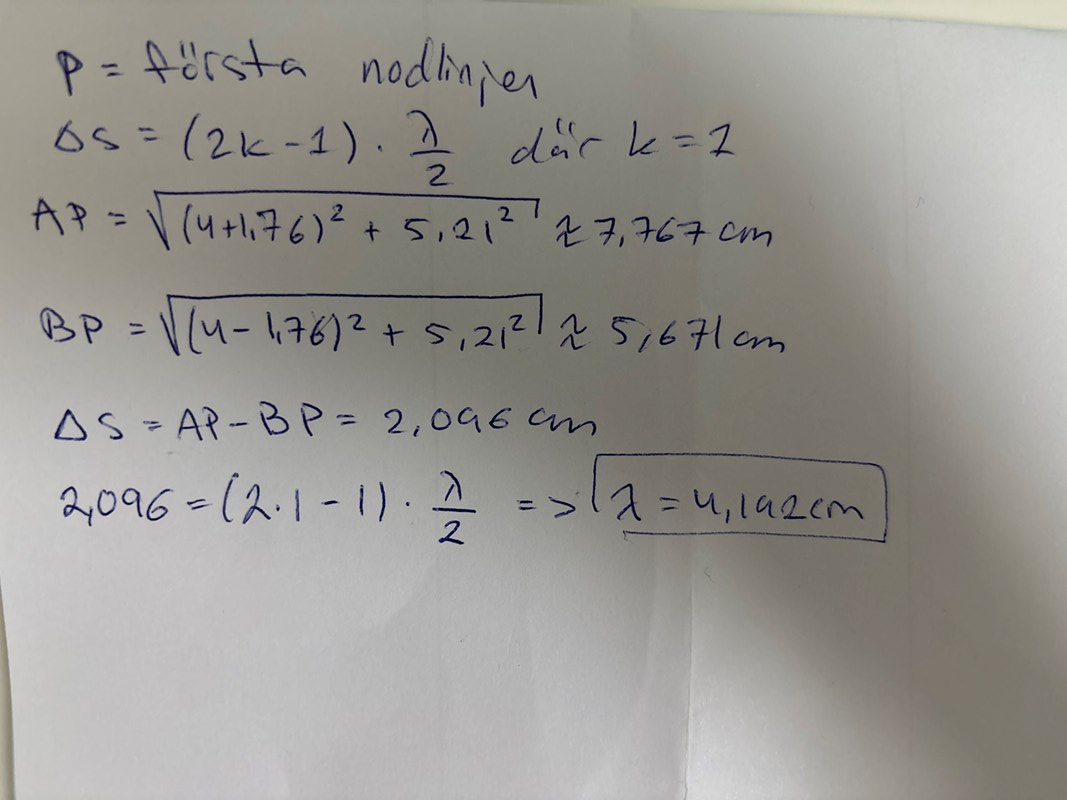 P = första nodlinjen
ΔS = (2k - 1) · λ/2 där k = 1
AP = √((4+1,76)² + 5,21²) ≈ 7,767 cm
BP = √((4 - 1,76)² + 5,21²) ≈ 5,671 cm
ΔS = AP - BP = 2,096 cm
2,096 = (2·1 - 1) · λ/2 => λ = 4,192 cm